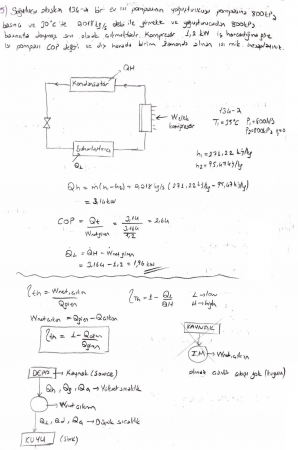 5) Soğutucu akışkan 134-a bir ev ısı pompasının yoğuşturucusu 800 kPa
basınç ve 35°C de 0,018 kg/s debi ile girmekte ve yoğuşturucudan 800 kPa
basınçta doymuş sıvı olarak çıkmaktadır. Kompresör 1,2 kW güç harcadığına göre
ısı pompası COP değeri ve dış havada birim zamanda alınan ısı mik. hesaplayınız.
QH
Kondansatör
Wnet,g
kompresör
134-a
T1=35°C P1=800kPa
P2=800kPa
h1=271,22 kJ/kg
h2=95,47 kJ/kg
QL
Qh = ṁ(h1-h2) = 0,018 kg/s (271,22 kJ/kg - 95,47 kJ/kg)
= 3,16 kW
COP = = 3,16 / 1,2 = 2,64
QL = QH - Wnet giren
= 3,16 - 1,2 = 1,96 kW
ηth = Wnet,çıkan / Qgiren
ηth = 1 - QL / QH
L → low
H → high
Wnet,çıkan = Qgiren - Qçıkan
ηth = 1 - Qçıkan / Qgiren
KAYNAK
I.M → Wnet,çıkan
DEPO → Kaynak (Source)
Qh, Qg, Qa → Yüksek sıcaklık
→ Wnet çıkan
QL, Qd, Qa → Düşük sıcaklık
KUYU (Sink)